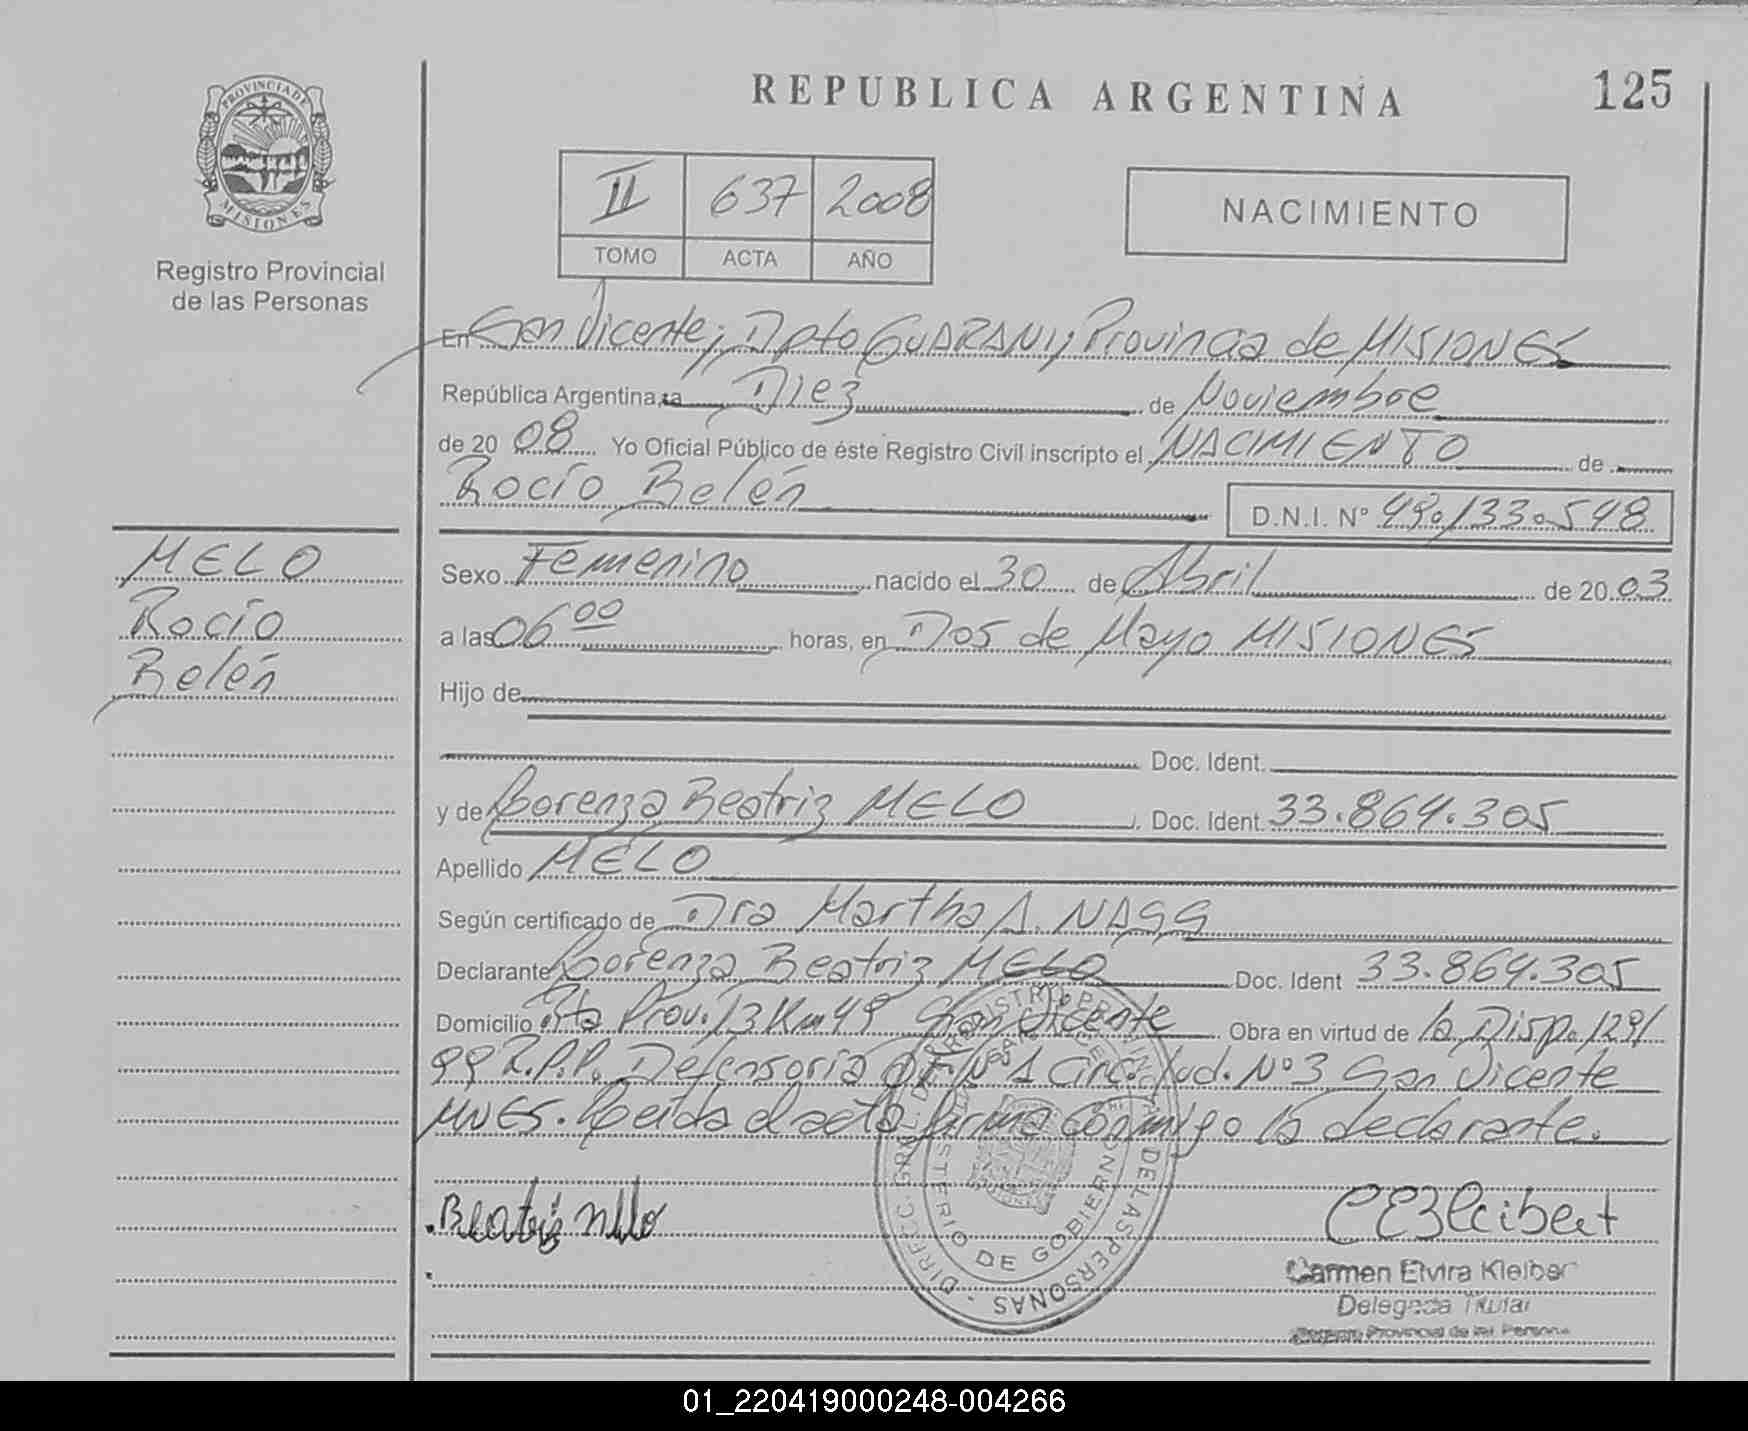 REPUBLICA ARGENTINA
125
PROVINCIA DE
MISIONES
Registro Provincial
de las Personas
II 637 2008
TOMO ACTA AÑO
NACIMIENTO
En San Vicente, Dpto GUARANI, Provincia de MISIONES
República Argentina, a Diez de Noviembre
de 20 08 Yo Oficial Público de éste Registro Civil inscripto el NACIMIENTO de
Rocío Belén
D.N.I. Nº 49.133.548
MELO
Rocío
Belén
Sexo Femenino nacido el 30 de Abril de 20 03
a las 06 00 horas, en Dos de Mayo MISIONES
Hijo de
Doc. Ident.
y de Lorenza Beatriz MELO Doc. Ident. 33.864.305
Apellido MELO
Según certificado de Dra Martha A. NAGG
Declarante Lorenza Beatriz MELO Doc. Ident 33.864.305
Domicilio Rta Prov. 13 Km 49 San Vicente Obra en virtud de la Disp. 129/
99 R.P.P. Defensoria Of. Nº 1 Circ. Jud. Nº 3 San Vicente
MNES. Leída el acta firma conmigo la declarante.
Beatriz Melo
CEKleibert
Carmen Elvira Kleiber
Delegada Titular
Registro Provincial de las Personas
DIRECC. GRAL. DEL REGISTRO PROV. DE LAS PERSONAS
MINISTERIO DE GOBIERNO
01_220419000248-004266